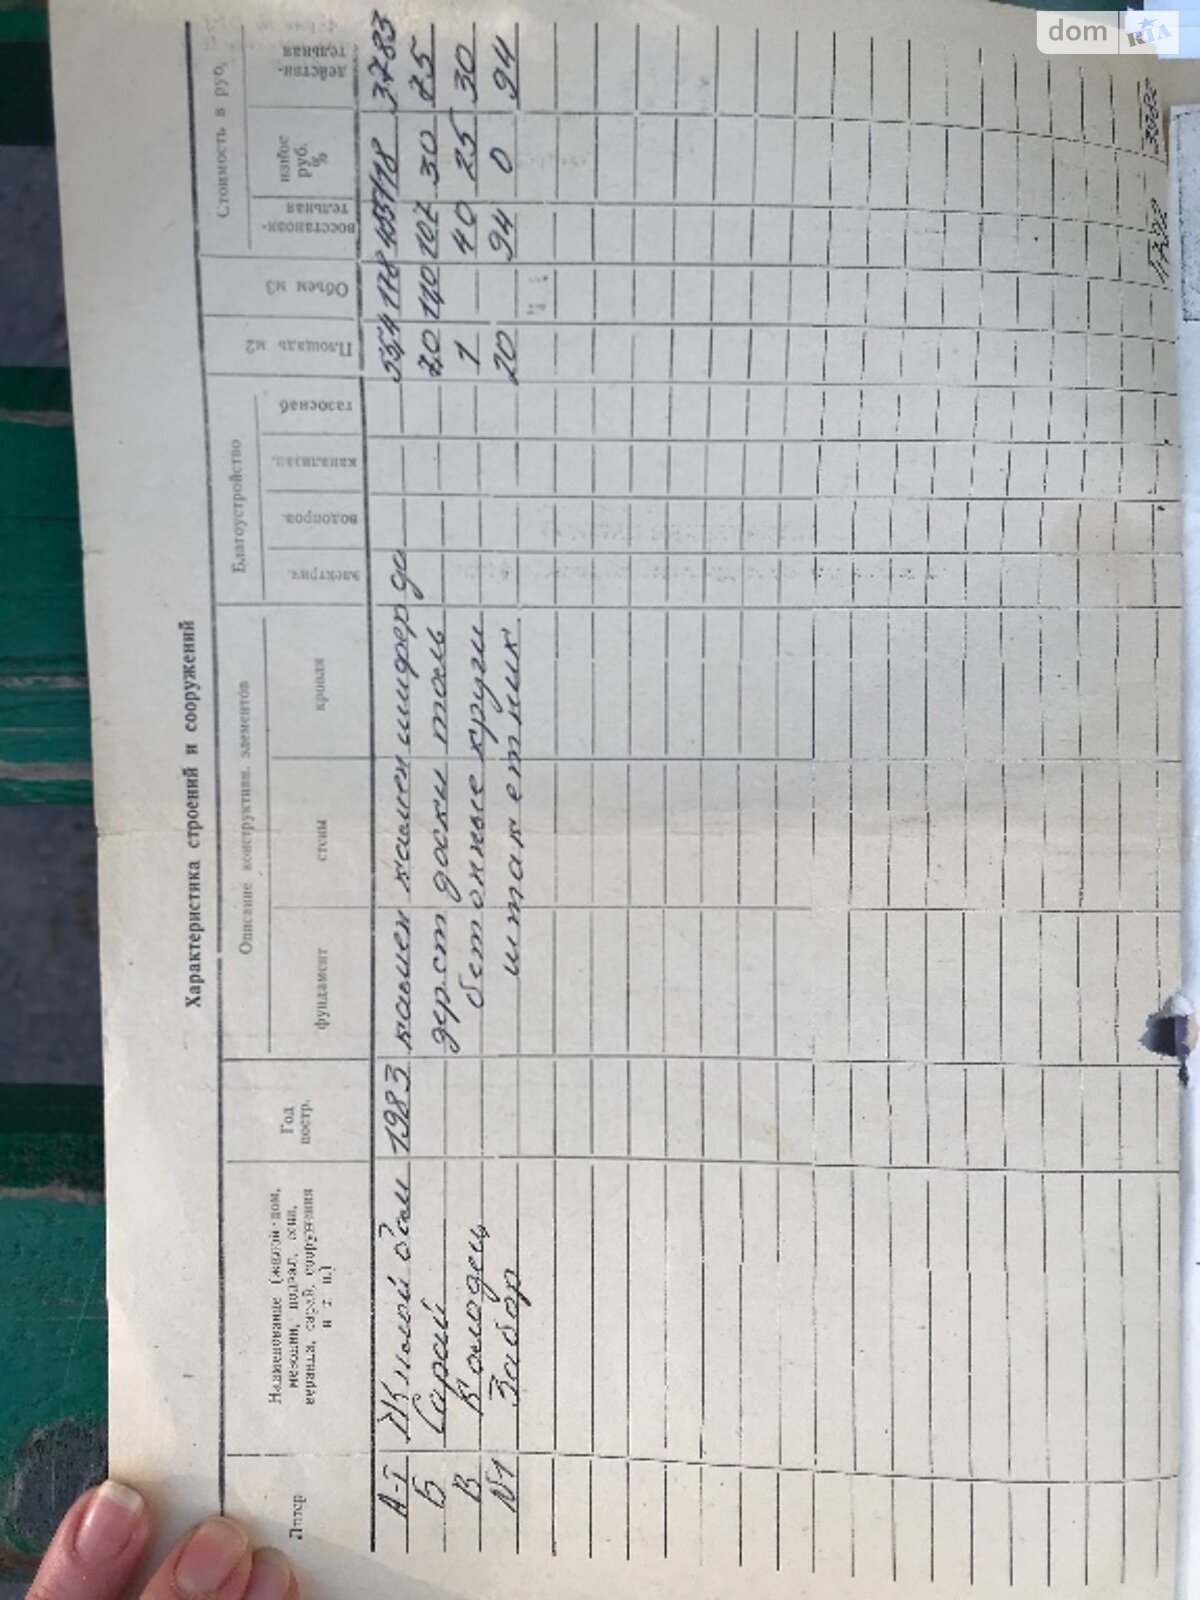 dom RIA
Характеристика строений и сооружений
Литер
Наименование (жилой дом, мезонин, подвал, сени, веранда, сарай, сооружения и т. п.)
Год постр.
Описание конструктивн. элементов
фундамент
стены
кровля
Благоустройство
электрич.
водопров.
канализац.
газоснаб
Площадь м2
Объем м3
Стоимость в руб.
восстанови-тельная
износ руб. %
действи-тельная
А-I Жилой дом 1983 камен камен шифер да 55,4 178 18 3783
Б Сарай дер.ст доски толь 20 140 107 30 75
В Колодец бетонные круги 1 40 25 30
№1 Забор штакетник 20 94 0 94
3982